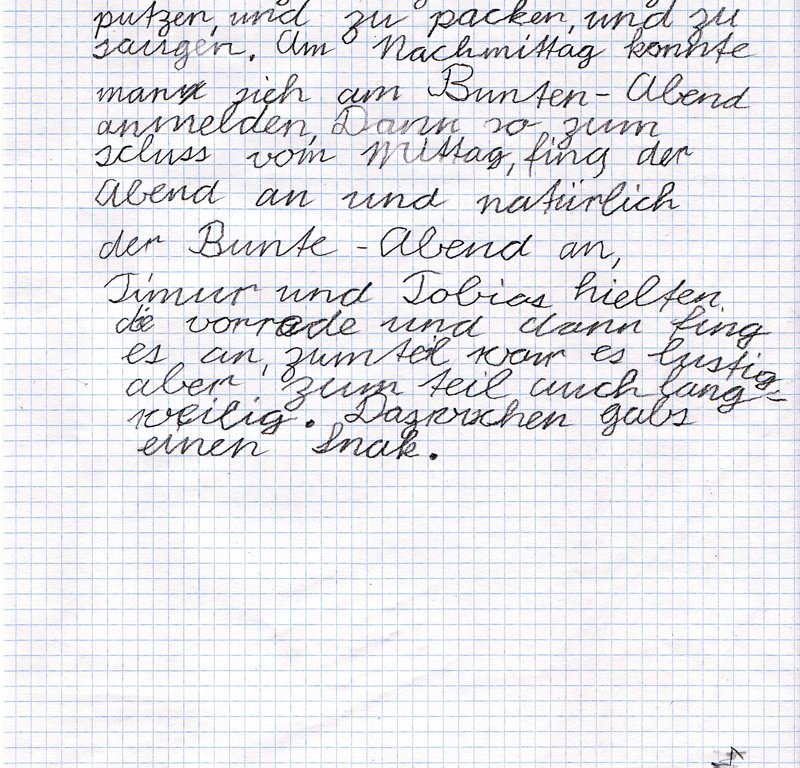 putzen, und zu packen, und zu
saugen. Am Nachmittag konnte
man sich am Bunten-Abend
anmelden, Dann so zum
schluss vom Mittag, fing der
Abend an und natürlich
der Bunte-Abend an,
Timur und Tobias hielten
die vorrede und dann fing
es an, zumteil war es lustig
aber zum teil auch lang=
weilig. Dazwischen gabs
einen Snak.